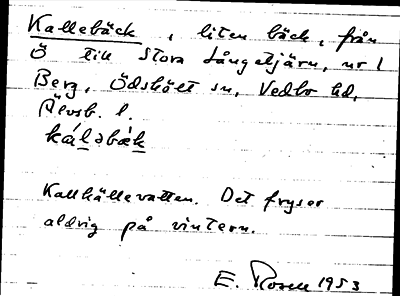 Kallebäck, liten bäck, från
Ö till Stora Långetjärn, nr 1
Berg, Ödskölt sn, Vedbo hd,
Älvsb. l.
kálәbæ̀k
Kallkällevatten. Det fryser
aldrig på vintern.
E. Rosell 1953